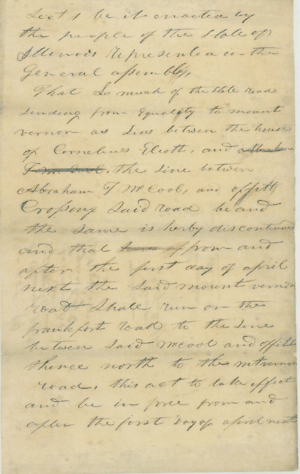 Sect 1 be it enacted by
the people of the State of
Illinois represented in the
General assembly,
That so much of the State road
leading from Equality to mount
vernon as lies between the house
of Cornelius Eliott, and
the line between
Abraham T McCool, and
Crossing Said road be and
the same is herby discontinued
and that from and
after the first day of april
next the said mount vernon
road Shall run on the
frankfort road to the line
between said McCool and
thence north to the mt vernon
road, this act to take effect
and be in force from and
after the first day of april next